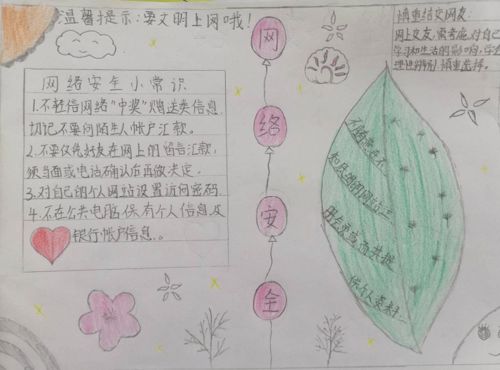 温馨提示:要文明上网哦!
网络安全小常识
1.不轻信网络"中奖"赠送类信息
切记不要向陌生人帐户汇款。
2.不要仅凭好友在网上的留言汇款,
须当面或电话确认后再做决定。
3.对自己的个人网站设置访问密码
4.不在公共电脑保存个人信息及
银行帐户信息。
网
络
安
全
慎重结交网友:
网上交友,需考虑对自己
学习和生活的影响,
理性辨别,慎重选择。
不随意在不
知底细的网站上